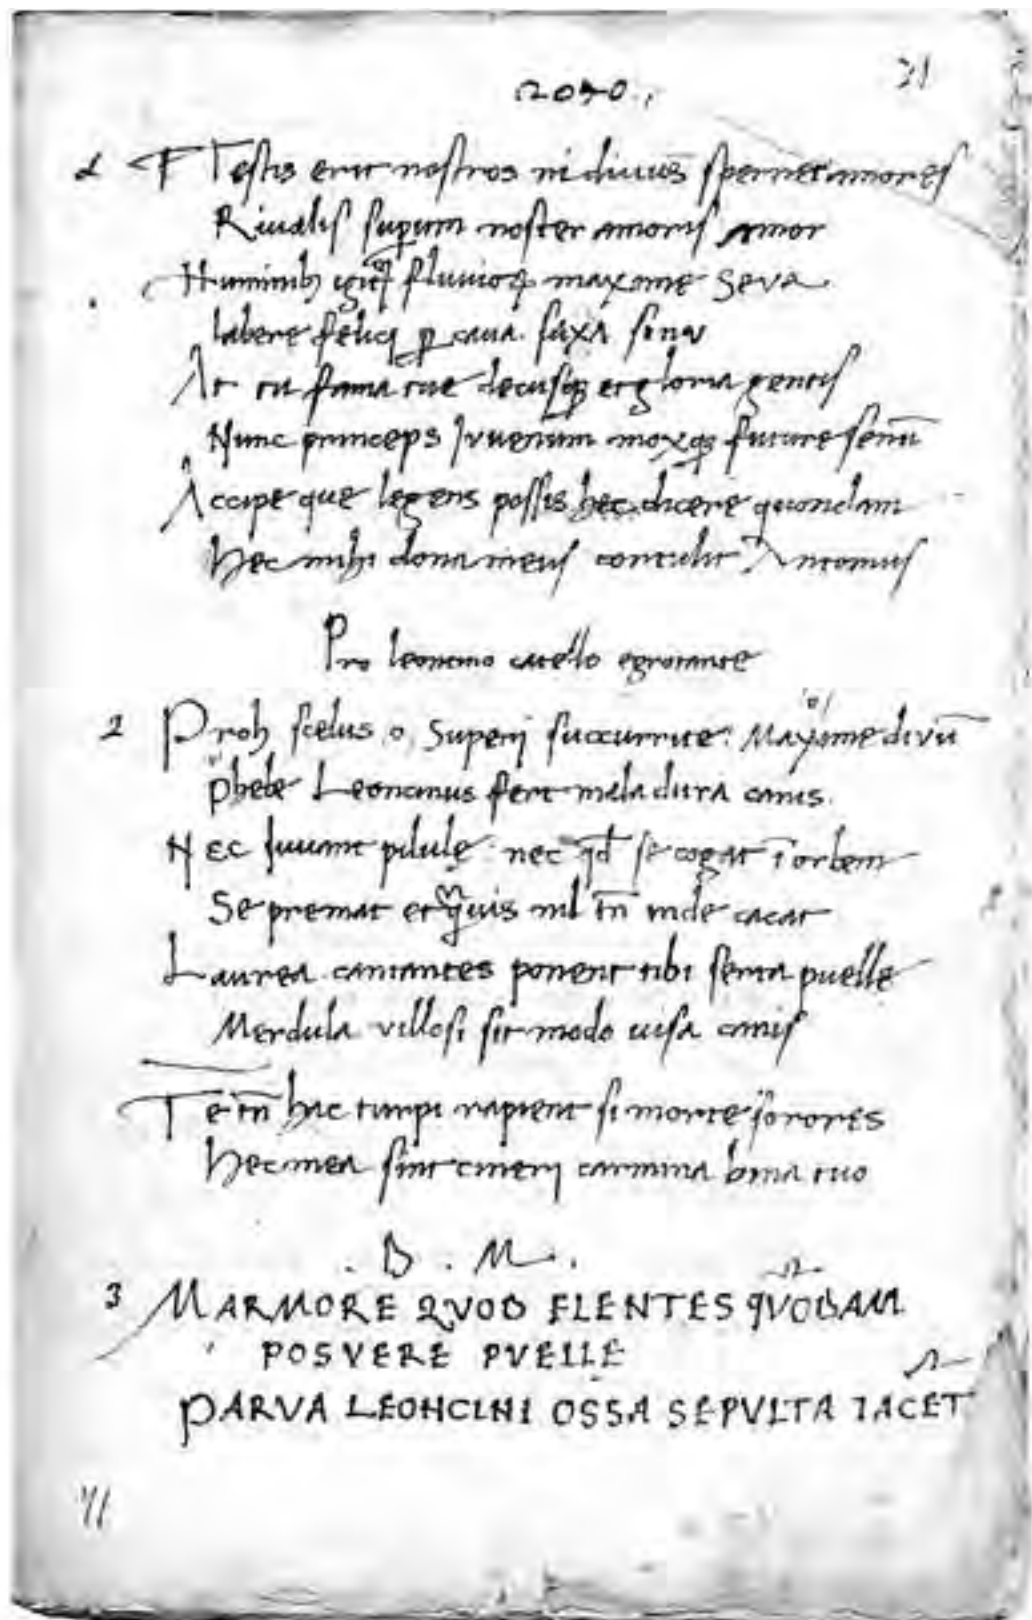 31
2070.
1 Testis erit nostros ni divus sperneret amores
Rivalis superum noster amoris amor
Huminibus igitur fluviorumque maxime Seva
labere felici per cava saxa sinu
At tu fama tue decusque et gloria gentis
Nunc princeps Iuvenum moxque future senum
Accipe que legens possis hec dicere quondam
Hec mihi dona meus contulit Antonius
Pro leoncino catello egrotante
2 Proh scelus o Superi succurrite: Maxime divum
Phebe Leoncinus fert mala dura canis.
Nec Iuvant pilulę nec qd se cogat ī orbem
Se premat et quis nil tn̄ inde cacat
Laurea cantantes ponent tibi serta puelle
Merdula villosi sit modo visa canis
Te tn̄ hac turpi rapient si morte sorores
Hec mea sint cineri carmina bina tuo
. D . M .
3 MARMORE QVOD FLENTES QVODAM
POSVERE PVELLE
PARVA LEONCINI OSSA SEPVLTA IACET
71